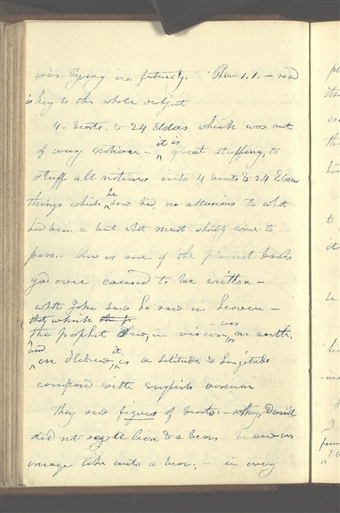 was lying in a futurity. Rev 1.1. — read
is key to the whole subject
4. beasts. & 24 Elders which was out
of every nation — it is great stuffing, to
stuff all nations into 4 beasts & 24 Elders
things which he saw had no allusions to what
had been — but what must shortly come to
pass. — Rev is one of the plainest books
god ever caused to be written —
what John saw he saw in heaven —
that which the prophet saw, in vision was on earth.
and in Hebrew, it is a latitude & longitude
compared with english version
they saw figures of beasts. — Daniel
did not see a lion & a bear he saw an
image like unto a bear. — in every